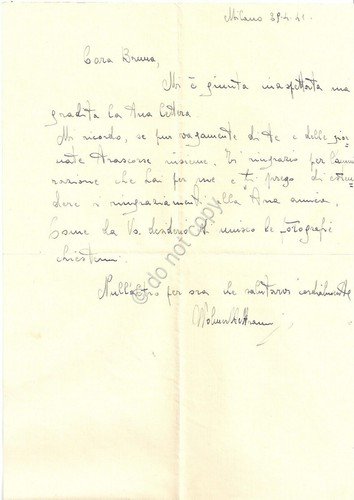 Milano 29.4.41.
Cara Bruna,
Mi è giunta inaspettata ma
gradita la tua lettera.
Mi ricordo, se pur vagamente di te e delle gior-
nate trascorse insieme. Vi ringrazio per l'ammi-
razione che hai per me e ti prego di esten-
dere i ringraziamenti alla tua amica.
Come da Vs. desiderio Vi invio le fotografie
chiestemi.
Null'altro per ora che salutarvi cordialmente
© do not copy